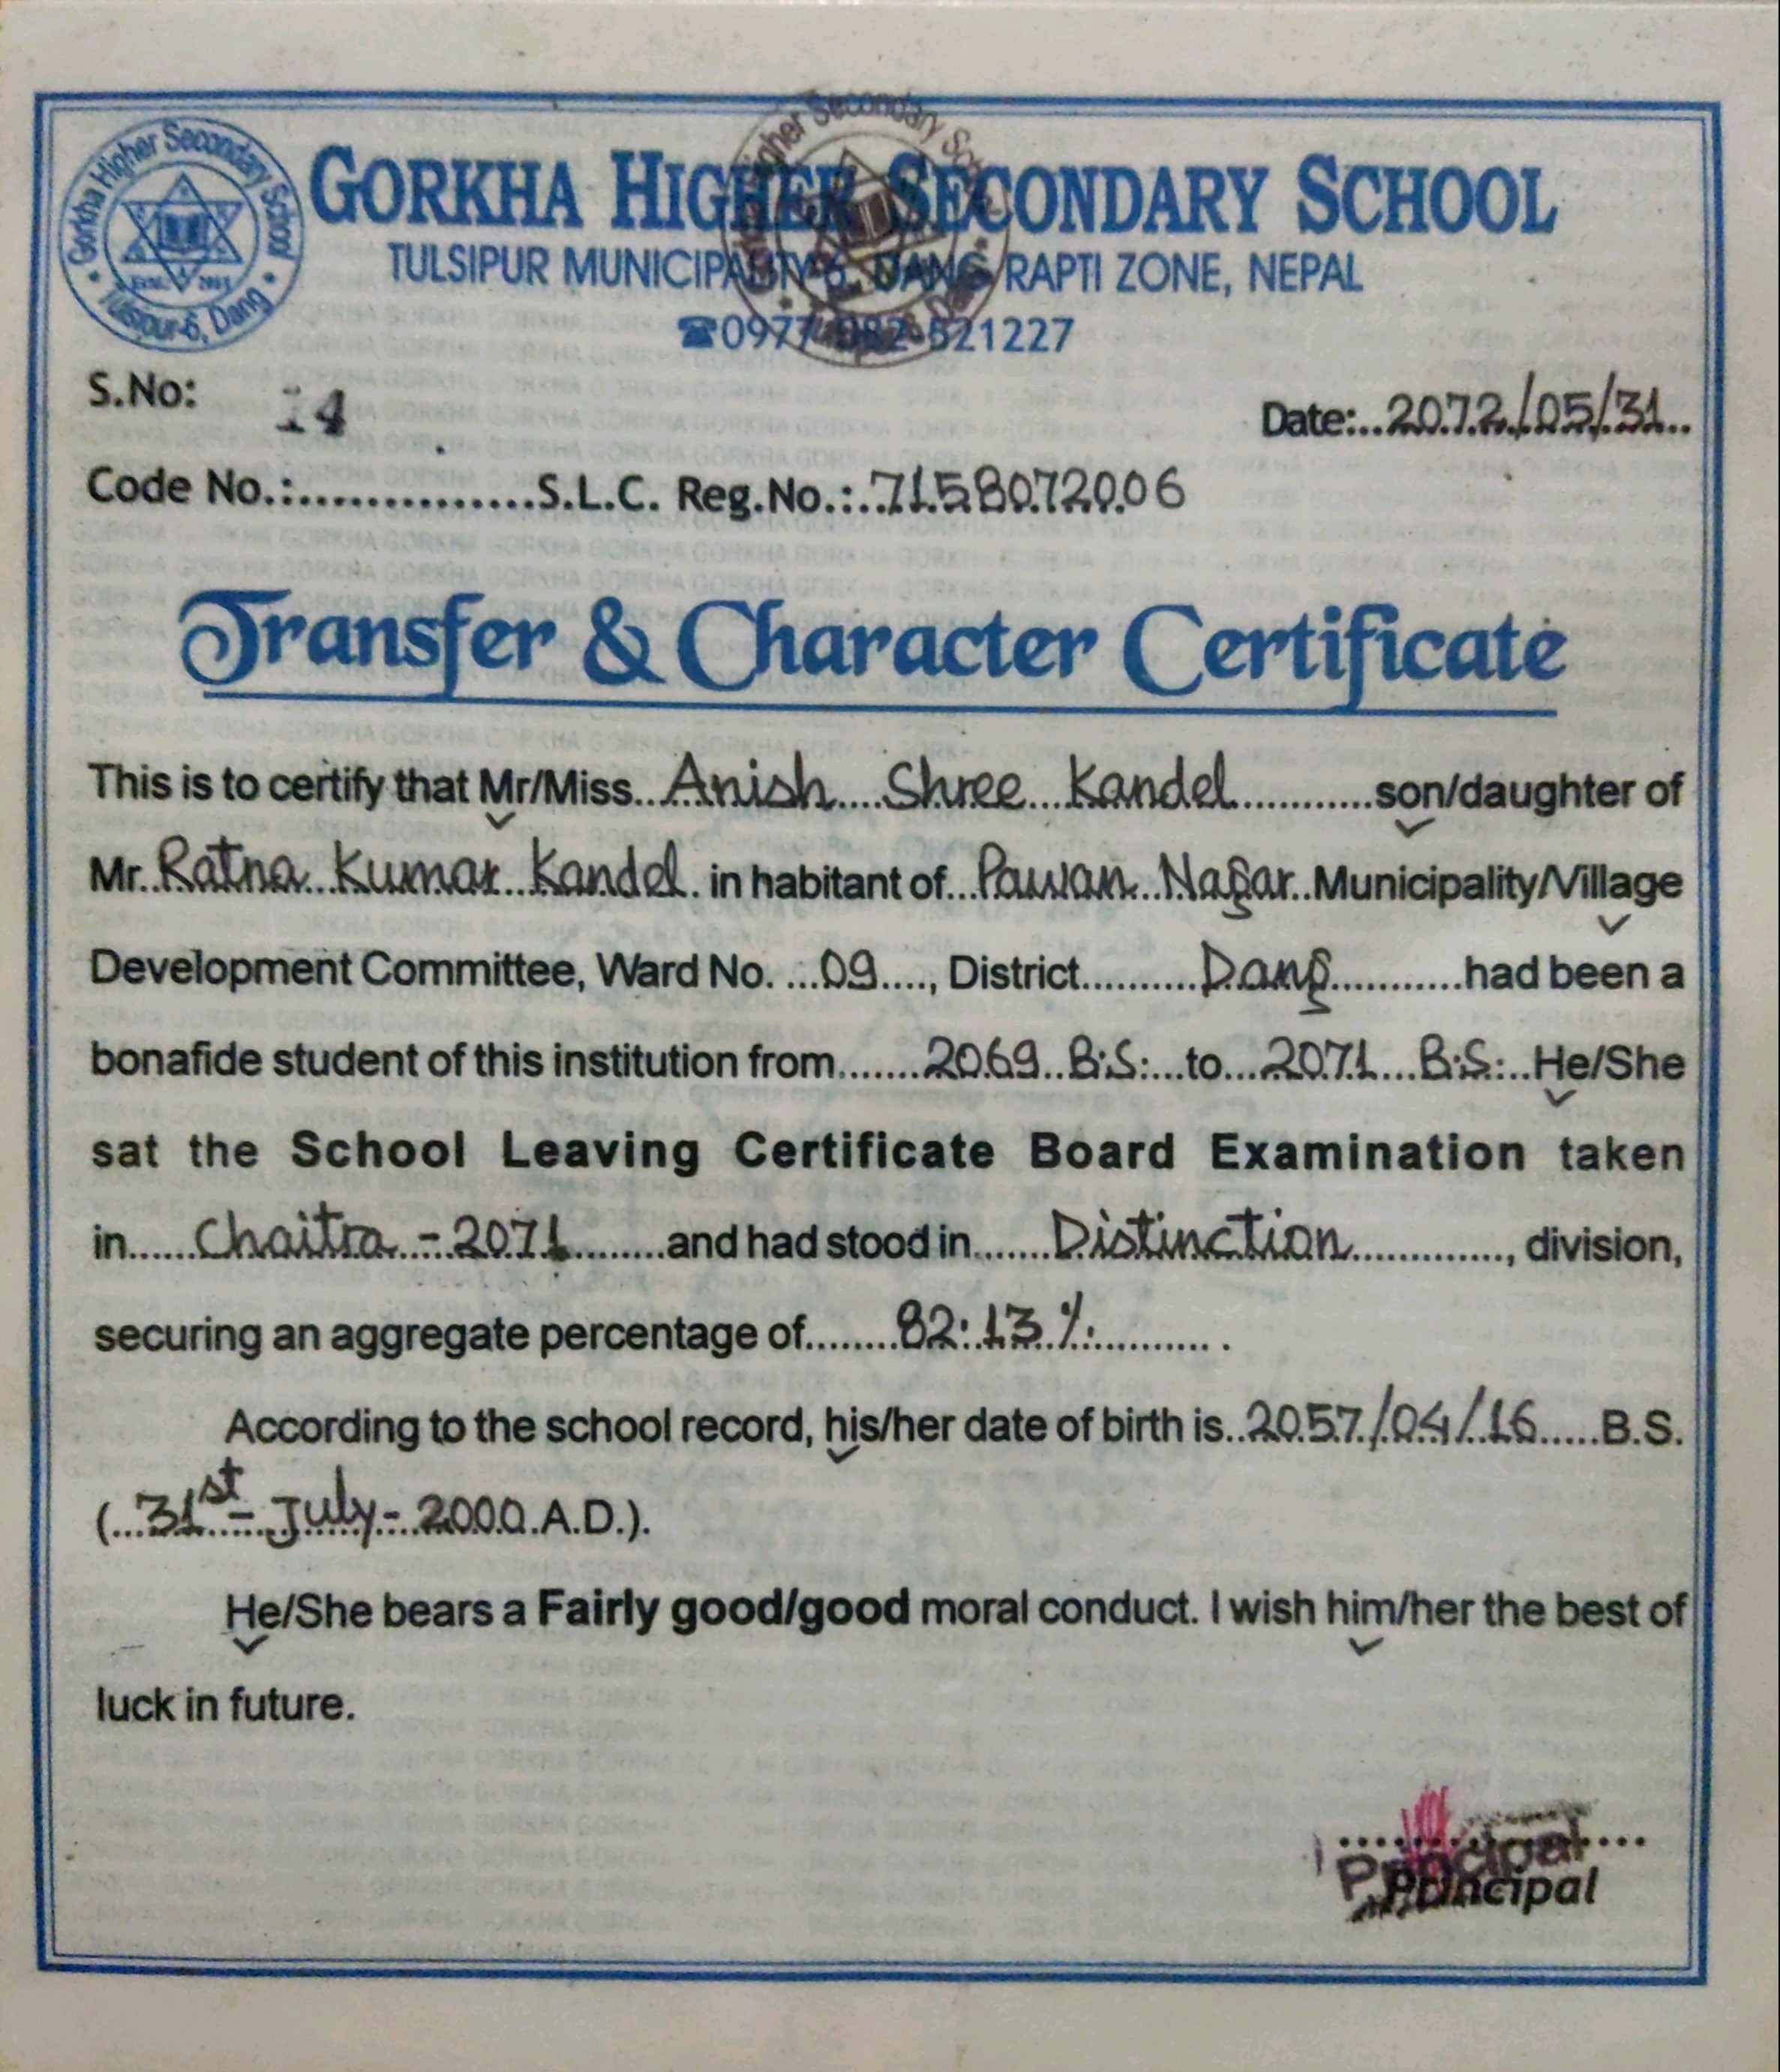 Gorkha Higher Secondary School
Tulsipur-6, Dang
GORKHA HIGHER SECONDARY SCHOOL
TULSIPUR MUNICIPALITY-6, DANG RAPTI ZONE, NEPAL
☎0977-082-521227
S.No: 14
Date:..2072/05/31..
Code No.:...............S.L.C. Reg.No.:.7158072006
Transfer & Character Certificate
This is to certify that Mr/Miss...Anish....Shree...Kandel............son/daughter of
Mr..Ratna...Kumar...Kandel. in habitant of...Pawan...Nagar..Municipality/Village
Development Committee, Ward No. ...09...., District..........Dang............had been a
bonafide student of this institution from.......2069..B.S....to...2071...B.S...He/She
sat the School Leaving Certificate Board Examination taken
in......Chaitra - 2071.........and had stood in.......Distinction............., division,
securing an aggregate percentage of........82.13 %........... .
According to the school record, his/her date of birth is..2057/04/16.....B.S.
(...31st - July - 2000.A.D.).
He/She bears a Fairly good/good moral conduct. I wish him/her the best of
luck in future.
Principal
Principal